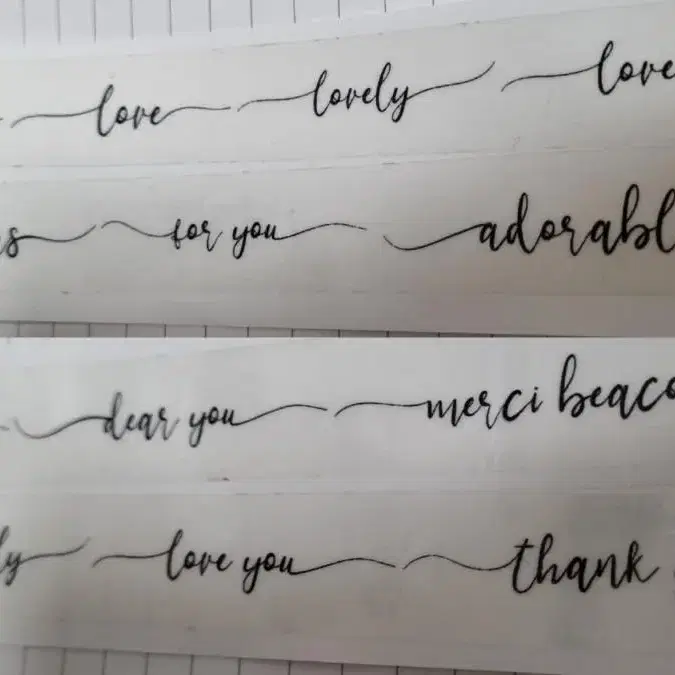 love lovely love
s for you adorabl
dear you merci beaco
ly love you thank